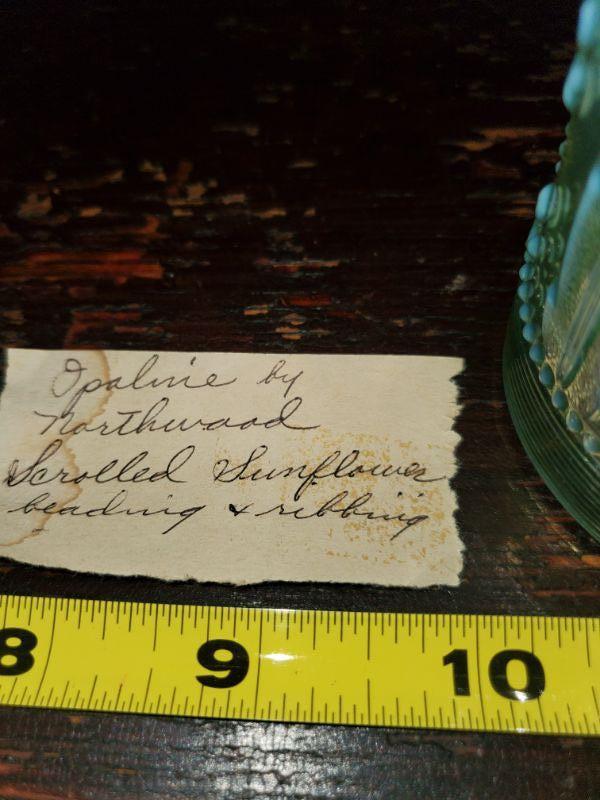 Opaline by
Northwood
Scrolled Sunflower
beading & ribbing
8 9 10